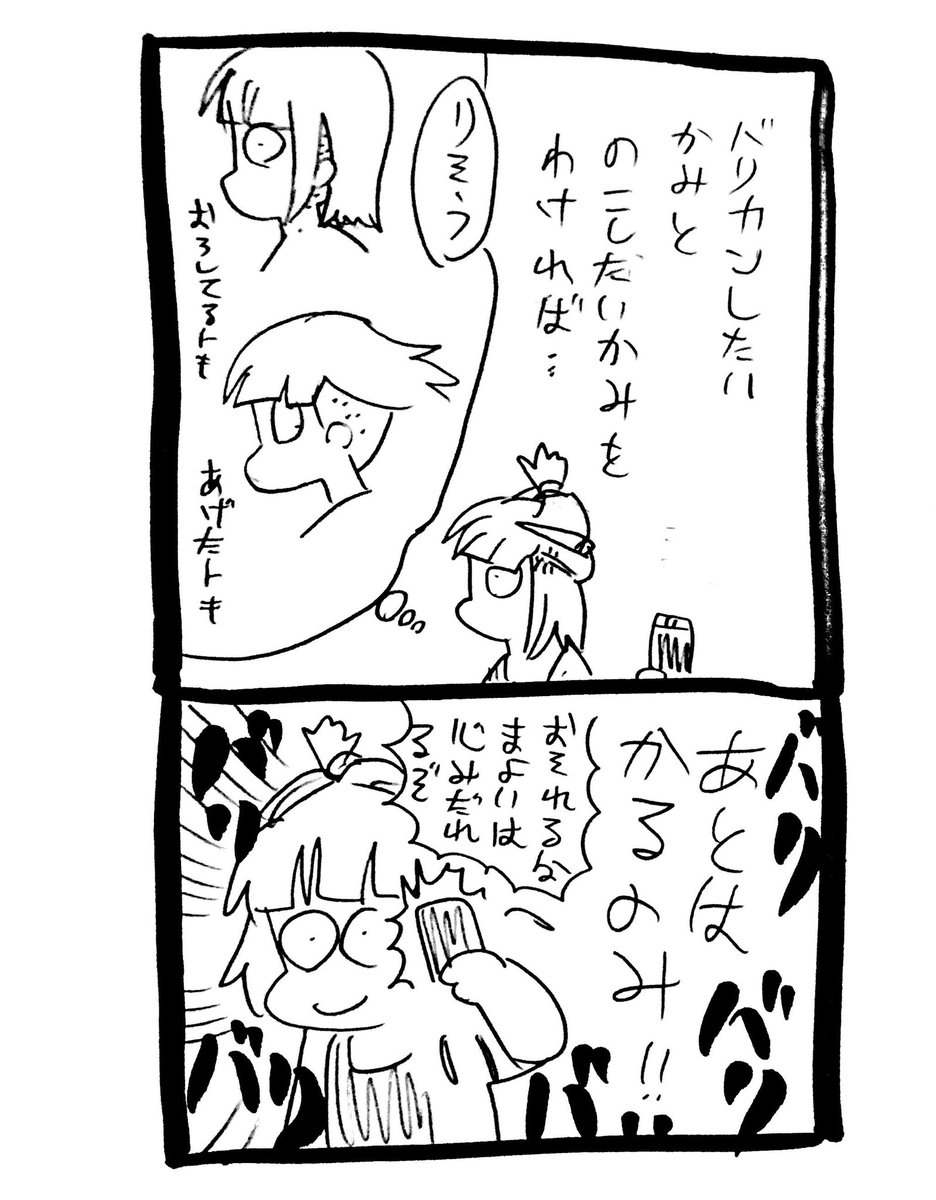 バリカンしたい
かみと
のこしたいかみを
わければ…
りそう
おろしてるトキ
あげたトキ
あとは
かるのみ!!
おそれるな
まよいは
心みだれ
るぞ
バリ
バリ
バリ
バリ
バリ